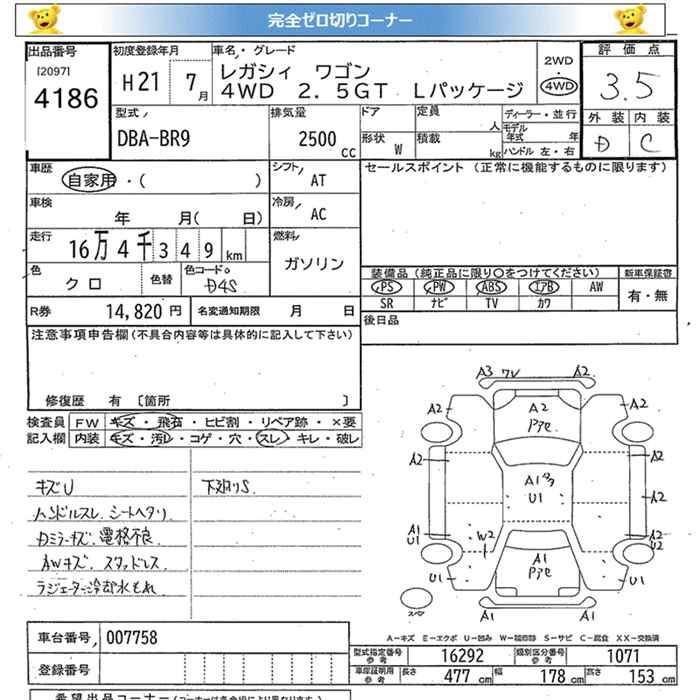 完全ゼロ切りコーナー
出品番号 初度登録年月 車名・グレード 評価点
[2097] 4186 H21 7月 レガシィ ワゴン
4WD 2.5GT Lパッケージ 2WD 4WD 3.5
型式 排気量 ドア 定員 人 ディーラー・並行 外装 内装
DBA-BR9 2500 CC 形状 W 積載 kg モデル年式 年 ハンドル 左・右 D C
車歴 自家用・( ) シフト AT セールスポイント(正常に機能するものに限ります)
車検 年 月( 日) 冷房 AC
走行 16万4千349km 燃料 ガソリン
色 クロ 色替 色コード D4S 装備品(純正品に限り○をつけてください) 新車保証書
PS PW ABS エアB AW 有・無
SR ナビ TV カワ
R券 14,820円 名変通知期限 月 日 後日品
注意事項申告欄(不具合内容等は具体的に記入して下さい)
修復歴 有 [箇所 ]
検査員 FW キズ・飛石・ヒビ割・リペア跡・×要
記入欄 内装 キズ・汚レ・コゲ・穴・スレ・キレ・破レ
キズU 下廻りS
ハンドルスレ、シートヘタリ
Dミラーキズ、電格不良
AWキズ、スタッドレス
ラジエーター冷却水もれ
A3 ワレ A2
A2 A2 A2
Pアセ
A2 A2
A1 U1 A2
A1 U1 W2 A2 U2
U1 A1 Pアセ U1
A1 A1
A-キズ E-エクボ U-凹み W-補修跡 S-サビ C-腐食 XX-交換済
車台番号 007758
型式指定番号 参考 16292 類別区分番号 参考 1071
登録番号
車庫証明用 参考 長さ 477cm 幅 178cm 高さ 153cm
希望出品コーナー